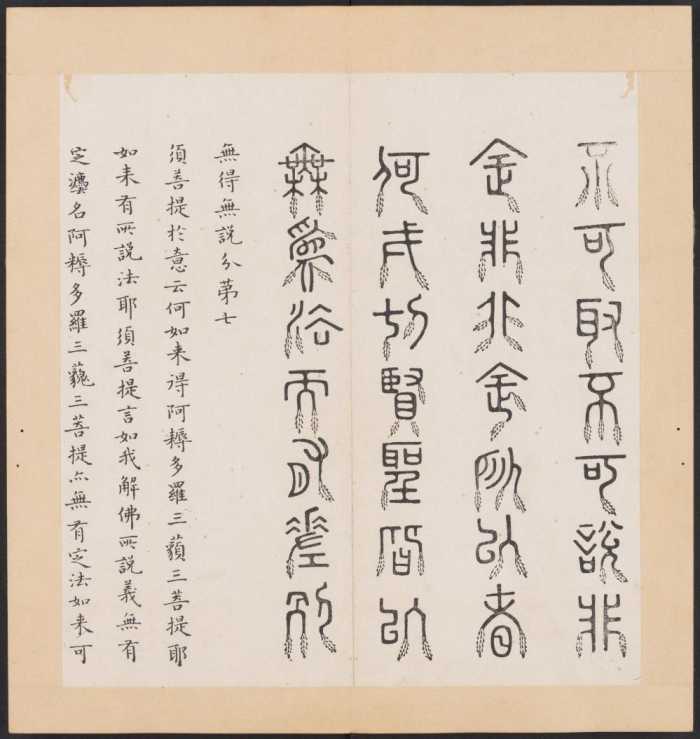 不可取不可說非
佱非非佱所以者
何弌切賢聖皆以
無為法而有差別
無得無說分苐七
須菩提於意云何如来得阿耨多羅三藐三菩提耶
如来有所說法耶須菩提言如我解佛所說義無有
定灋名阿耨多羅三藐三菩提亦無有定法如来可